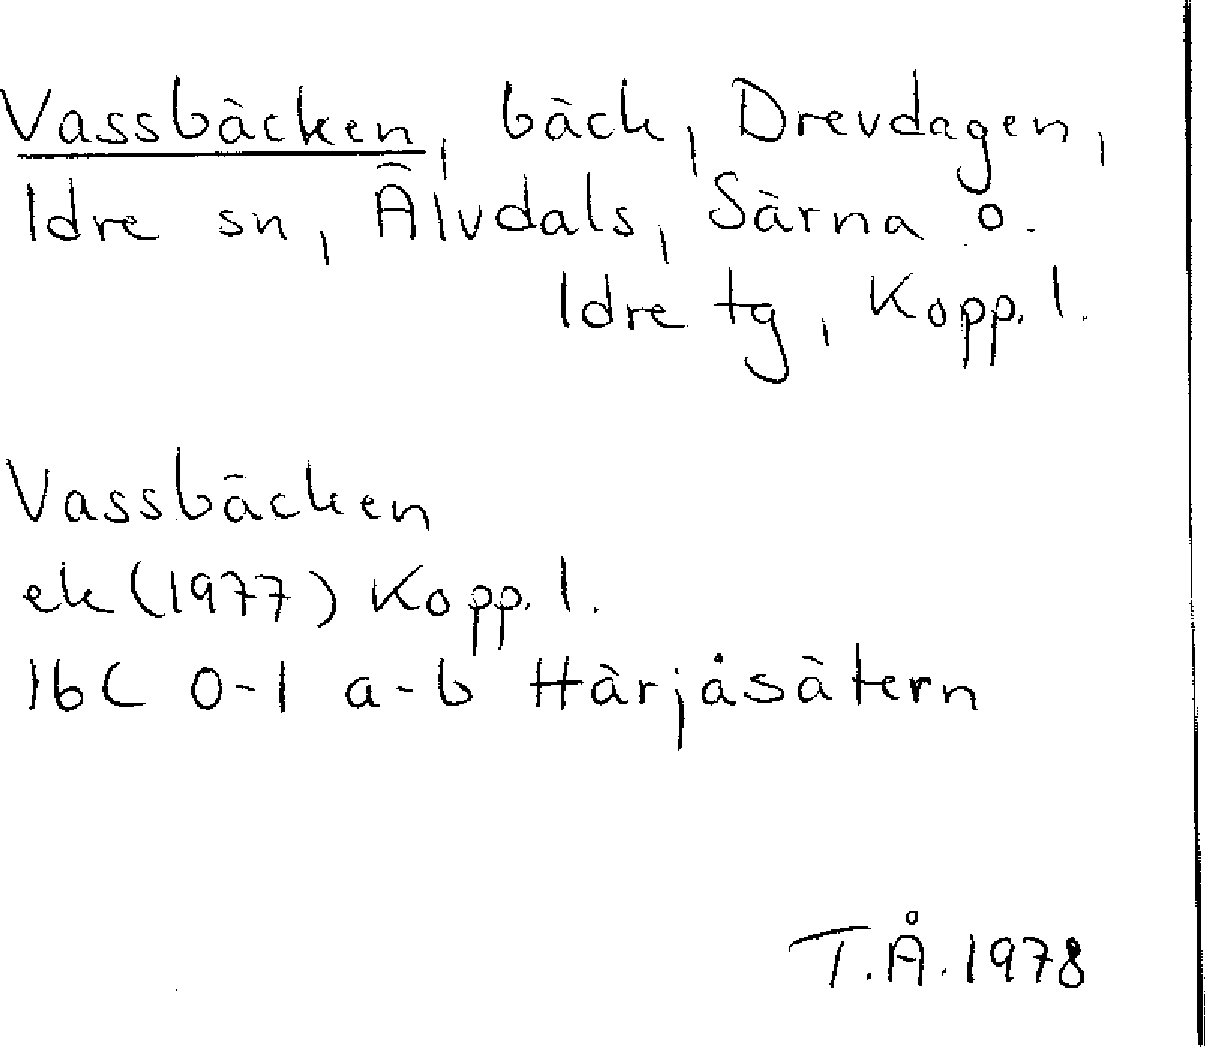 Vassbäcken, bäck, Drevdagen,
Idre sn, Älvdals, Särna o.
Idre tg, Kopp. l.
Vassbäcken
ek (1977) Kopp. l.
16C 0-1 a-b Härjåsätern
T.Å. 1978